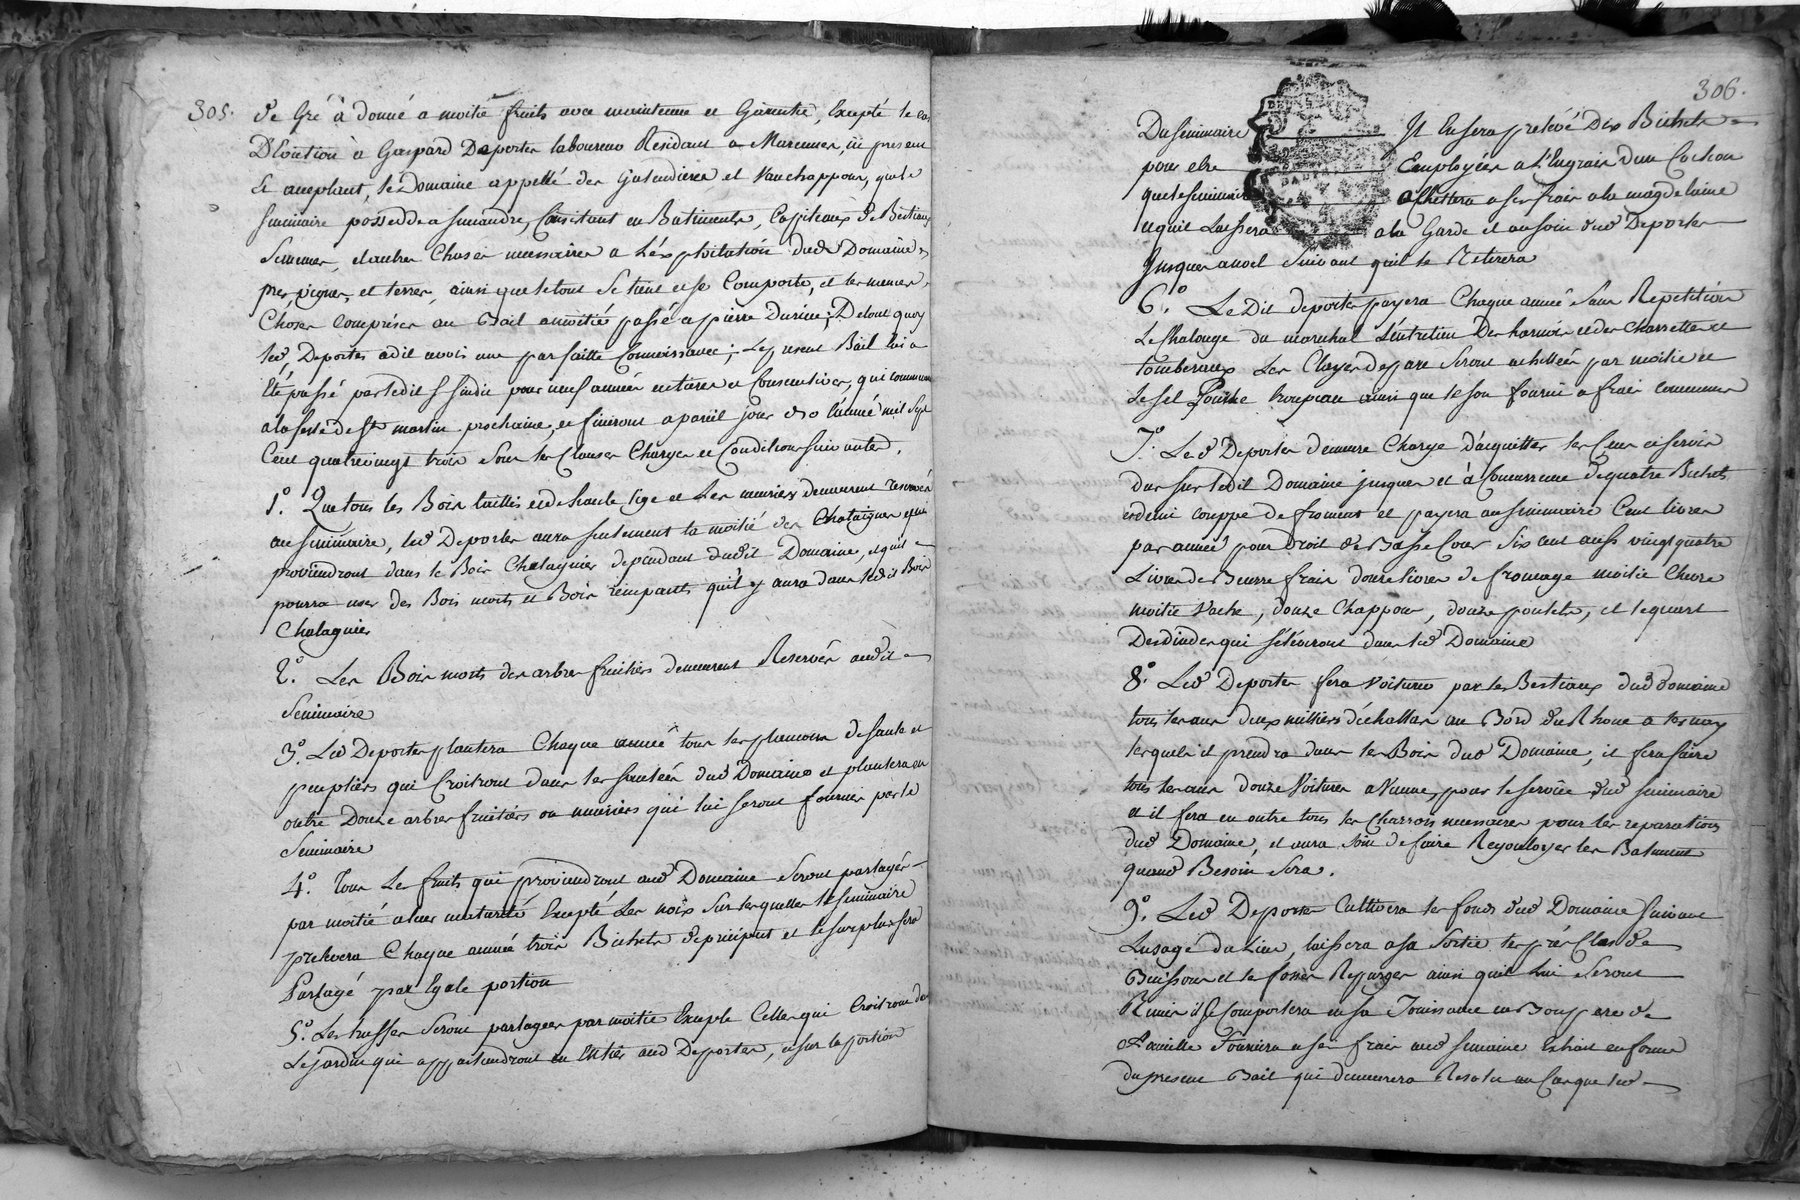 305.
de Gré à donné a moitié fruits avec maintenue et Garentie, Excepté le cas
D'Eviction à Gaspard Deporter laboureur Residant a Marennes, icy present
Et acceptant, le Domaine appellé des Galandieres et Vauchappon, que le
seminaire possedde a simandre, Consistant en Batiments, Cappitaux de Bestiaux
Semences, et autres Choses necessaires a L'exploitation dud Domaine,
prés, vignes, et terres, ainsi que le tout se tient et se Comporte, et les memes
Choses comprises au Bail a moitié passé a pierre ; De tout quoy
led Deporter a dit avoir une parfaitte Connoissance ; Le present Bail lui a
Eté passé par ledit S sindic pour neuf années entieres et Consecutives, qui commenceront
a la feste de St martin prochaine, et finiront a pareil jour de l'année mil sept
Cent quatrevingt trois sous les Clauses Charges et Conditions suivantes.
1° Que tous les Bois taillis et de haute tige et Les muriers demeurent reservés
au seminaire, led Deporter aura seulement la moitié des Chataignes qui
proviendront dans le Bois Chatagnier dependant dudit Domaine, et qu'il
pourra user des Bois morts et Bois rempants qu'il y aura dans ledit Bois
Chatagnier
2° Les Bois morts des arbres fruitiers demeurent Reservés audit
Seminaire
3° Led Deporter plantera Chaque année tous les plançons de saule et
peupliers qui Croitront dans les saulées dud Domaine et plantera en
outre Douze arbres fruitiers ou muriers qui lui seront fournies par le
Seminaire
4° Tous Le fruits qui proviendront aud Domaine Seront partagés
par moitié a leur maturité Excepté Les noix Sur lesquelles le seminaire
prelevera Chaque année trois Bichets de préciput et le surplus sera
Partagé par Egale portion
5° Les truffes seront partagées par moitié Excepté Celles qui Croitront dans
Le jardin qui appartiendront en Entier aud Deporter, et sur la portion
306.
Du seminaire Il En sera prelevé Dix Bichets
pour etre Employées a L'Engrais d'un Cochon
que le seminaire achettera a ses frais a la magdelaine
et qu'il Laissera a la Garde et au soin dud Deporter
Jusques a noel Suivant qu'il le Retirera
6° Le Dit deporter payera Chaque année sans Repetition
Le du marechal L'entretien Des harnois et des Charrettes et
tombereaux Les Clayes de parc seront achettées par moitié et
le sel Pour le troupeau ainsi que le son fourni a frais communs
7° Led Deporter demeure Chargé d'acquitter les Cens et servis
dus sur ledit Domaine jusques et à Concurrence de quatre Bichets
et demi couppe de froment et payera au seminaire Cent livres
par année pour Droit de Basse Cour six cent oeufs vingt quatre
Livres de Beurre frais douze livres de fromage moitié Chevre
moitié Vache, douze Chappons, douze poulets, et le quart
Des dindes qui s'éleveront dans led Domaine
8° Led Deporter fera Voiturer par les Bestiaux dud domaine
tous les ans deux milliers d'échallas au Bord du Rhone a ternay
lesquels il prendra dans les Bois dud Domaine, il fera faire
tous les ans douze Voitures a Vienne, pour le service dud seminaire
et il fera en outre tous les Charrois necessaires pour les reparations
dud Domaine, et aura soin de faire les Batiments
quand Besoin sera.
9° Led Deporter Cultivera les fonds dud Domaine suivant
L'usage du Lieu, laissera a sa sortie les prés Clos de
Buissons et le fossés Repurgés ainsi qu'ils Lui seront
Remis il se Comportera en sa Jouissance en Bon pere de
famille Fournira a ses frais aud seminaire Extrait en forme
du present Bail qui demeurera Resolu au Cas que led